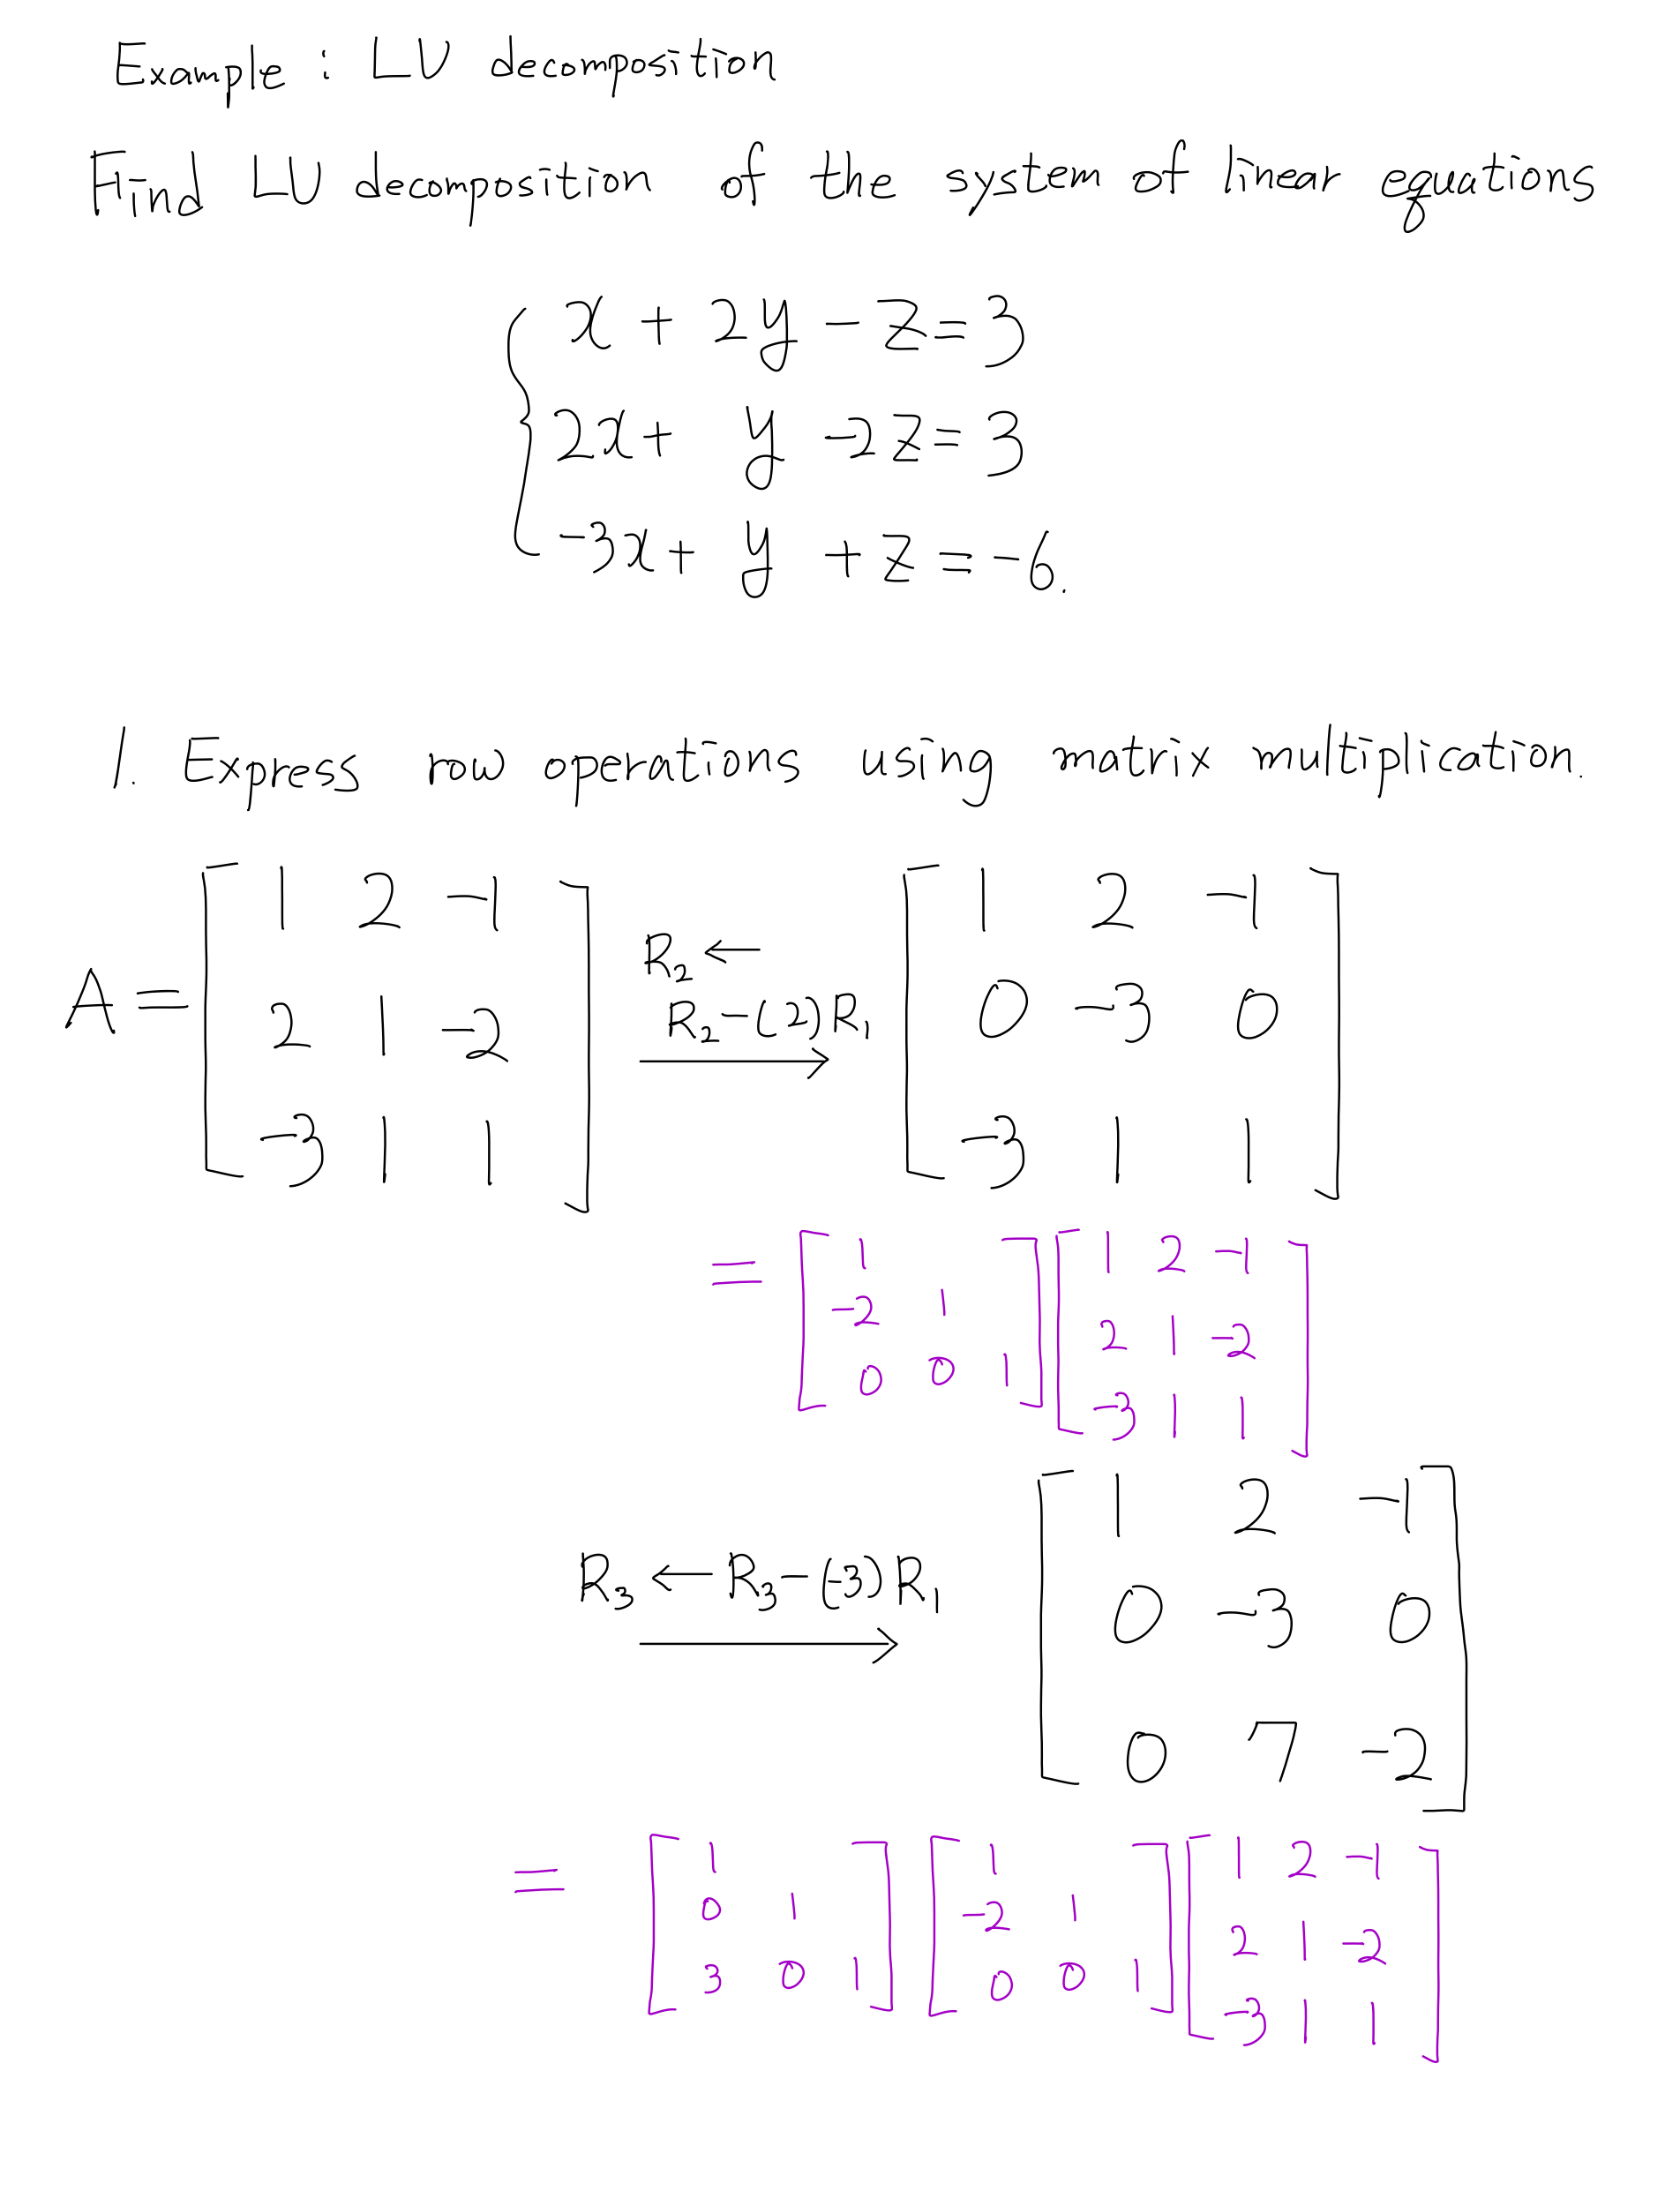 Example : LU decomposition
Find LU decomposition of the system of linear equations
x + 2y - z = 3
2x + y - 2z = 3
-3x + y + z = -6.
1. Express row operations using matrix multiplication.
A = [ 1 2 -1
2 1 -2
-3 1 1 ]
R₂ ←
R₂ - (2)R₁
→
[ 1 2 -1
0 -3 0
-3 1 1 ]
= [ 1
-2 1
0 0 1 ] [ 1 2 -1
2 1 -2
-3 1 1 ]
R₃ ← R₃ - (-3)R₁
→
[ 1 2 -1
0 -3 0
0 7 -2 ]
= [ 1
0 1
3 0 1 ] [ 1
-2 1
0 0 1 ] [ 1 2 -1
2 1 -2
-3 1 1 ]